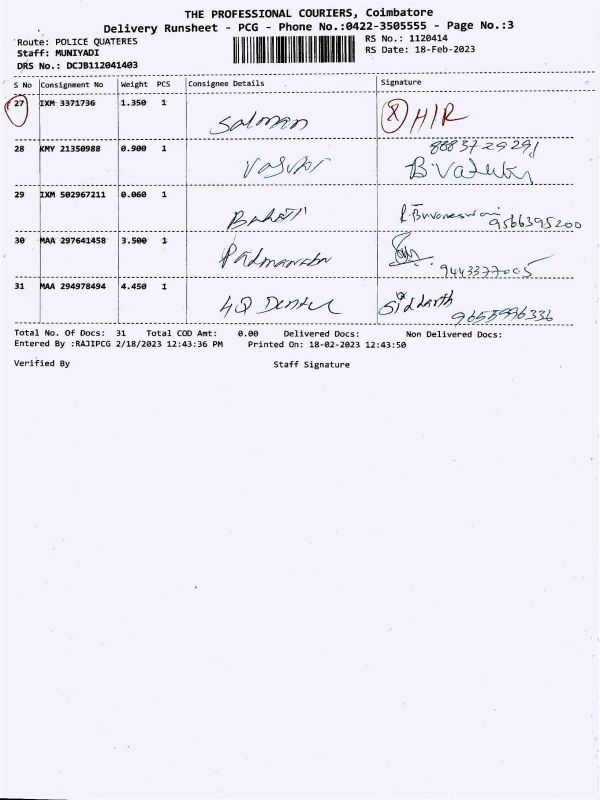 THE PROFESSIONAL COURIERS, Coimbatore
Delivery Runsheet - PCG - Phone No.:0422-3505555 - Page No.:3
Route: POLICE QUATERES RS No.: 1120414
Staff: MUNIYADI RS Date: 18-Feb-2023
DRS No.: DCJB112041403
S No Consignment No Weight PCS Consignee Details Signature
27 IXM 3371736 1.350 1 Salman (X) H/R
28 KMY 21350988 0.900 1 8883729291
29 IXM 502967211 0.060 1 9566395200
30 MAA 297641458 3.500 1 9443377005
31 MAA 294978494 4.450 1 Siddarth 9655996336
Total No. Of Docs: 31 Total COD Amt: 0.00 Delivered Docs: Non Delivered Docs:
Entered By :RAJIPCG 2/18/2023 12:43:36 PM Printed On: 18-02-2023 12:43:50
Verified By Staff Signature